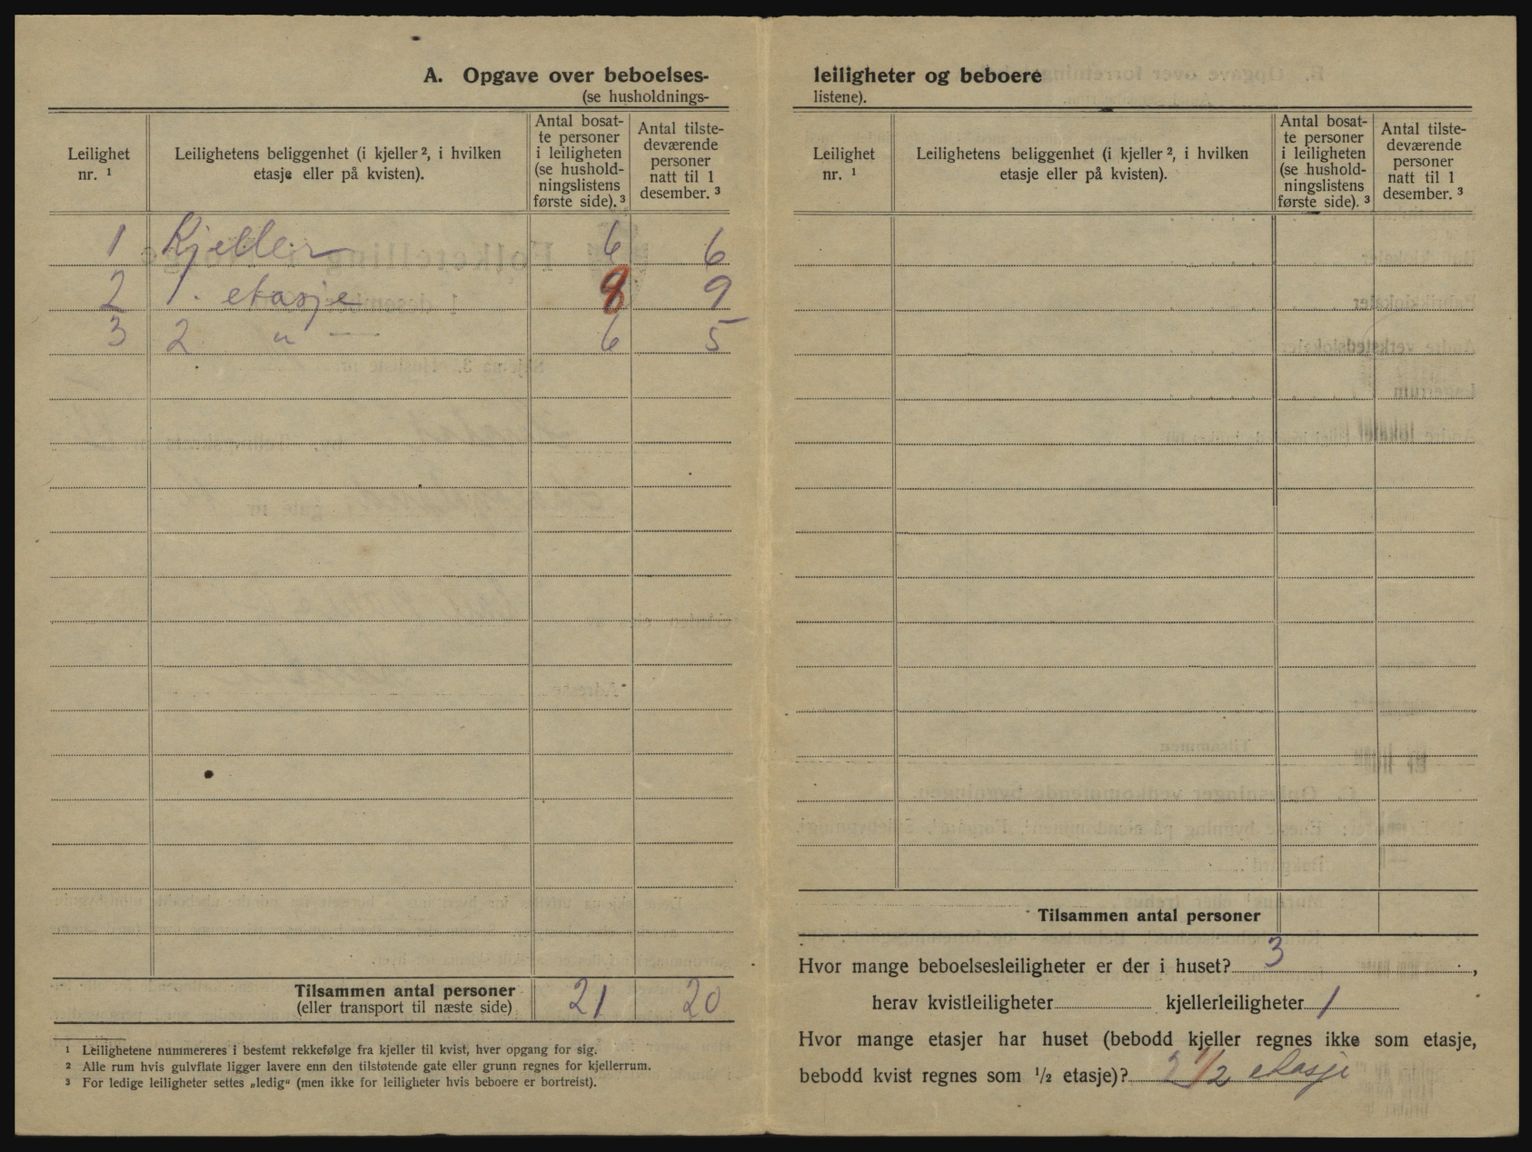 A. Opgave over beboelses-
(se husholdnings-
Leilighet nr. ¹
Leilighetens beliggenhet (i kjeller ², i hvilken etasje eller på kvisten).
Antal bosat-
te personer
i leiligheten
(se hushold-
ningslistens
første side). ³
Antal tilste-
deværende
personer
natt til 1
desember. ³
1 Kjeller 6 6
2 1. etasje 8 9
3 2 " — 6 5
Tilsammen antal personer
(eller transport til næste side) 21 20
¹ Leilighetene nummereres i bestemt rekkefølge fra kjeller til kvist, hver opgang for sig.
² Alle rum hvis gulvflate ligger lavere enn den tilstøtende gate eller grunn regnes for kjellerrum.
³ For ledige leiligheter settes „ledig“ (men ikke for leiligheter hvis beboere er bortreist).
leiligheter og beboere
listene).
Leilighet nr. ¹
Leilighetens beliggenhet (i kjeller ², i hvilken etasje eller på kvisten).
Antal bosat-
te personer
i leiligheten
(se hushold-
ningslistens
første side). ³
Antal tilste-
deværende
personer
natt til 1
desember. ³
Tilsammen antal personer
Hvor mange beboelsesleiligheter er der i huset? 3,
herav kvistleiligheter kjellerleiligheter 1
Hvor mange etasjer har huset (bebodd kjeller regnes ikke som etasje,
bebodd kvist regnes som ½ etasje)? 2 1/2 etasje